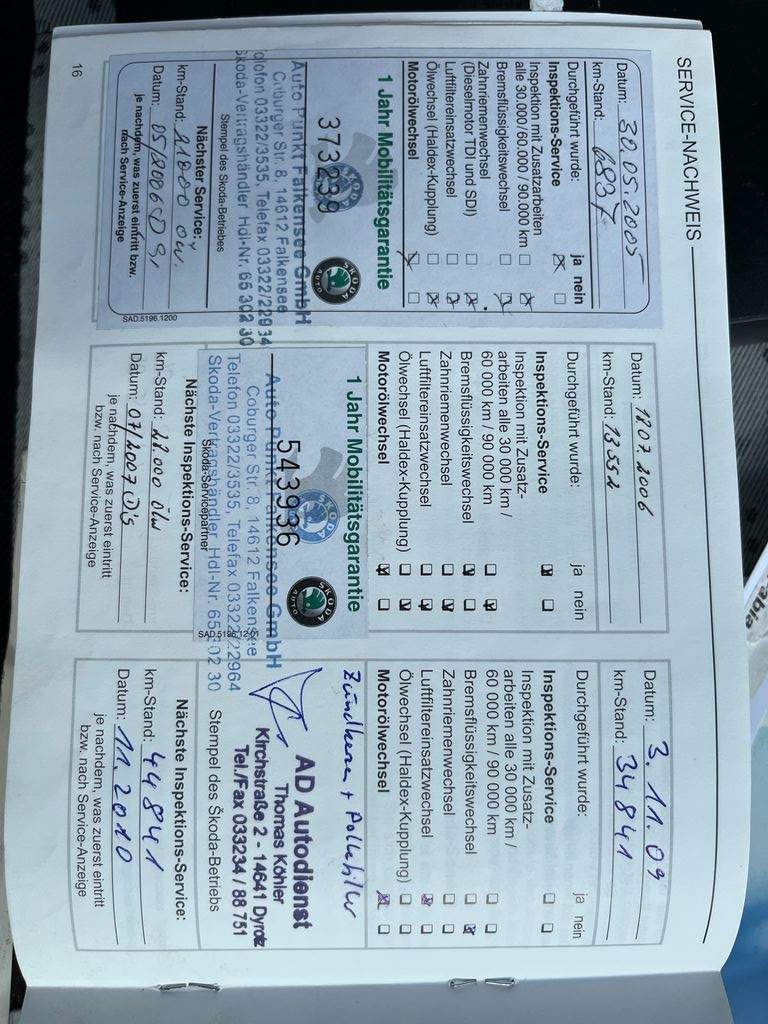 SERVICE-NACHWEIS
Datum: 30.05.2005
km-Stand: 6837
Durchgeführt wurde: ja nein
Inspektions-Service
Inspektion mit Zusatzarbeiten
alle 30.000/60.000/ 90.000 km
Bremsflüssigkeitswechsel
Zahnriemenwechsel
(Dieselmotor TDI und SDI)
Luftfiltereinsatzwechsel
Ölwechsel (Haldex-Kupplung)
Motorölwechsel
1 Jahr Mobilitätsgarantie
SKODA
AUTO
373239
Auto Punkt Falkensee GmbH
Coburger Str. 8, 14612 Falkensee
Telefon 03322/3535, Telefax 03322/22934
Skoda-Vertragshändler Hdl-Nr. 65 302 30
Stempel des Skoda-Betriebes
Nächster Service:
km-Stand: 21000
Datum: 05/2006
je nachdem, was zuerst eintritt bzw.
nach Service-Anzeige
SAD.5196.1200
Datum: 18.07.2006
km-Stand: 13552
Durchgeführt wurde: ja nein
Inspektions-Service
Inspektion mit Zusatz-
arbeiten alle 30 000 km /
60 000 km / 90 000 km
Bremsflüssigkeitswechsel
Zahnriemenwechsel
Luftfiltereinsatzwechsel
Ölwechsel (Haldex-Kupplung)
Motorölwechsel
1 Jahr Mobilitätsgarantie
SKODA
AUTO
543936
Auto Punkt Falkensee GmbH
Coburger Str. 8, 14612 Falkensee
Telefon 03322/3535, Telefax 03322/22964
Skoda-Vertragshändler Hdl-Nr. 65 302 30
Skoda-Servicepartner
SAD.5196.12.00
Nächste Inspektions-Service:
km-Stand: 28.000
Datum: 07/2007
je nachdem, was zuerst eintritt
bzw. nach Service-Anzeige
Datum: 3.11.09
km-Stand: 34841
Durchgeführt wurde: ja nein
Inspektions-Service
Inspektion mit Zusatz-
arbeiten alle 30 000 km /
60 000 km / 90 000 km
Bremsflüssigkeitswechsel
Zahnriemenwechsel
Luftfiltereinsatzwechsel
Ölwechsel (Haldex-Kupplung)
Motorölwechsel
Zündkerzen + Pollenfilter
AD Autodienst
Thomas Köhler
Kirchstraße 2 - 14641 Dyrotz
Tel./Fax 033234 / 88 751
Stempel des Škoda-Betriebs
Nächste Inspektions-Service:
km-Stand: 44841
Datum: 11.2010
je nachdem, was zuerst eintritt
bzw. nach Service-Anzeige
16
abia